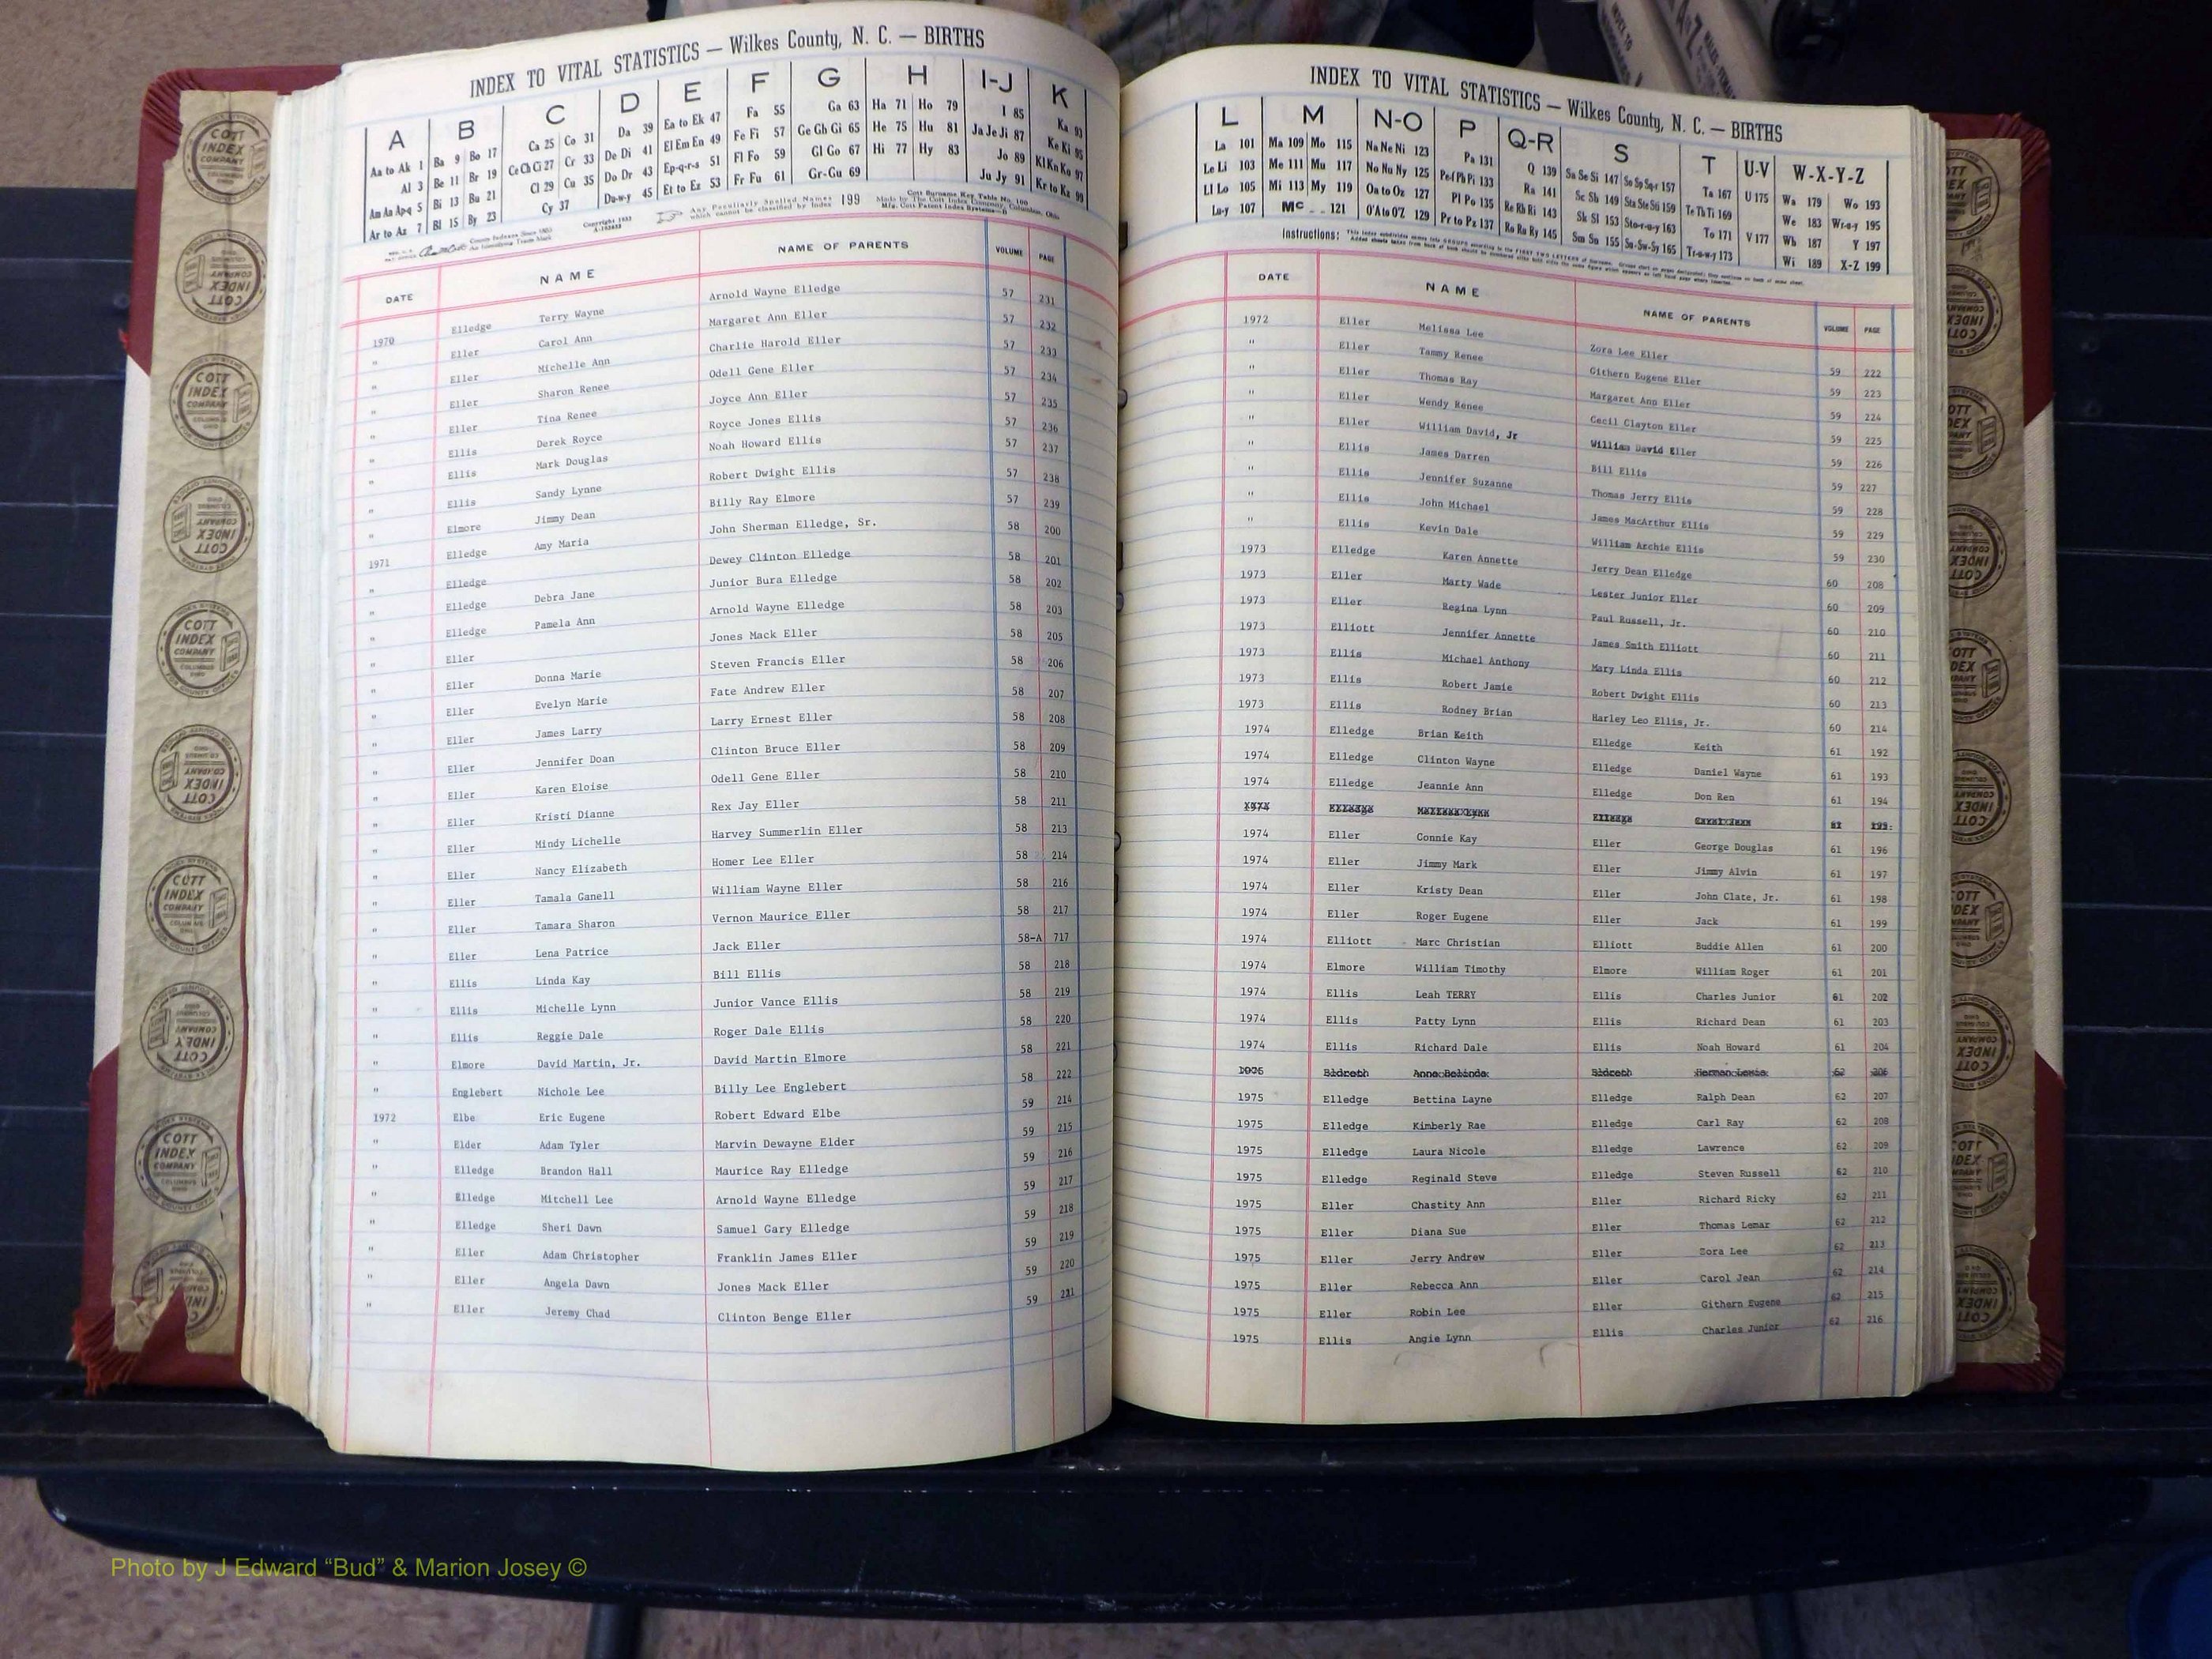 INDEX TO VITAL STATISTICS — Wilkes County, N. C. — BIRTHS
A B C D E F G H I-J K
Aa to Ak 1 Ba 9 Bo 17 Ca 25 Co 31 Da 39 Ea to Ek 47 Fa 55 Ga 63 Ha 71 Ho 79 I 85 Ka 93
Al 3 Be 11 Br 19 Ce Ch Ci 27 Cr 33 De Di 41 El Em En 49 Fe Fi 57 Ge Gh Gi 65 He 75 Hu 81 Ja Je Ji 87 Ke Ki 95
Am An Ap-q 5 Bi 13 Bu 21 Cl 29 Cu 35 Do Dr 43 Ep-q-r-s 51 Fl Fo 59 Gl Go 67 Hi 77 Hy 83 Jo 89 Kl Kn Ko 97
Ar to Az 7 Bl 15 By 23 Cy 37 Du-w-y 45 Et to Ez 53 Fr Fu 61 Gr-Gu 69 Ju Jy 91 Kr to Kz 99
Any Peculiarly Spelled Names which cannot be classified by Index 199
DATE NAME NAME OF PARENTS VOLUME PAGE
1970 Elledge Terry Wayne Arnold Wayne Elledge 57 231
" Eller Carol Ann Margaret Ann Eller 57 232
" Eller Michelle Ann Charlie Harold Eller 57 233
" Eller Sharon Renee Odell Gene Eller 57 234
" Eller Tina Renee Joyce Ann Eller 57 235
" Ellis Derek Royce Royce Jones Ellis 57 236
" Ellis Mark Douglas Noah Howard Ellis 57 237
" Ellis Sandy Lynne Robert Dwight Ellis 57 238
" Elmore Jimmy Dean Billy Ray Elmore 57 239
1971 Elledge Amy Maria John Sherman Elledge, Sr. 58 200
" Elledge Dewey Clinton Elledge 58 201
" Elledge Debra Jane Junior Bura Elledge 58 202
" Elledge Pamela Ann Arnold Wayne Elledge 58 203
" Eller Jones Mack Eller 58 205
" Eller Donna Marie Steven Francis Eller 58 206
" Eller Evelyn Marie Fate Andrew Eller 58 207
" Eller James Larry Larry Ernest Eller 58 208
" Eller Jennifer Doan Clinton Bruce Eller 58 209
" Eller Karen Eloise Odell Gene Eller 58 210
" Eller Kristi Dianne Rex Jay Eller 58 211
" Eller Mindy Lichelle Harvey Summerlin Eller 58 213
" Eller Nancy Elizabeth Homer Lee Eller 58 214
" Eller Tamala Ganell William Wayne Eller 58 216
" Eller Tamara Sharon Vernon Maurice Eller 58 217
" Eller Lena Patrice Jack Eller 58-A 717
" Ellis Linda Kay Bill Ellis 58 218
" Ellis Michelle Lynn Junior Vance Ellis 58 219
" Ellis Reggie Dale Roger Dale Ellis 58 220
" Elmore David Martin, Jr. David Martin Elmore 58 221
" Englebert Nichole Lee Billy Lee Englebert 58 222
1972 Elbe Eric Eugene Robert Edward Elbe 59 214
" Elder Adam Tyler Marvin Dewayne Elder 59 215
" Elledge Brandon Hall Maurice Ray Elledge 59 216
" Elledge Mitchell Lee Arnold Wayne Elledge 59 217
" Elledge Sheri Dawn Samuel Gary Elledge 59 218
" Eller Adam Christopher Franklin James Eller 59 219
" Eller Angela Dawn Jones Mack Eller 59 220
" Eller Jeremy Chad Clinton Benge Eller 59 221
INDEX TO VITAL STATISTICS — Wilkes County, N. C. — BIRTHS
L M N-O P Q-R S T U-V W-X-Y-Z
La 101 Ma 109 Mo 115 Na Ne Ni 123 Pa 131 Q 139 Sa Se Si 147 So Sp Sq-r 157 Ta 167 U 175 Wa 179 Wo 193
Le Li 103 Me 111 Mu 117 No Nu Ny 125 Pe-f Ph Pi 133 Ra 141 Sc Sh 149 Sta Ste Sti 159 Te Th Ti 169 V 177 We 183 Wr-u-y 195
Ll Lo 105 Mi 113 My 119 Oa to Oz 127 Pl Po 135 Re Rh Ri 143 Sk Sl 153 Sto-r-u-y 163 To 171 Wh 187 Y 197
Lu-y 107 Mc 121 O'A to O'Z 129 Pr to Pz 137 Ro Ru Ry 145 Sm Sn 155 Su-Sw-Sy 165 Tr-u-w-y 173 Wi 189 X-Z 199
Instructions:
DATE NAME NAME OF PARENTS VOLUME PAGE
1972 Eller Melissa Lee Zora Lee Eller 59 222
" Eller Tammy Renee Githern Eugene Eller 59 223
" Eller Thomas Ray Margaret Ann Eller 59 224
" Eller Wendy Renee Cecil Clayton Eller 59 225
" Eller William David, Jr William David Eller 59 226
" Ellis James Darren Bill Ellis 59 227
" Ellis Jennifer Suzanne Thomas Jerry Ellis 59 228
" Ellis John Michael James MacArthur Ellis 59 229
" Ellis Kevin Dale William Archie Ellis 59 230
1973 Elledge Karen Annette Jerry Dean Elledge 60 208
1973 Eller Marty Wade Lester Junior Eller 60 209
1973 Eller Regina Lynn Paul Russell, Jr. 60 210
1973 Elliott Jennifer Annette James Smith Elliott 60 211
1973 Ellis Michael Anthony Mary Linda Ellis 60 212
1973 Ellis Robert Jamie Robert Dwight Ellis 60 213
1973 Ellis Rodney Brian Harley Leo Ellis, Jr. 60 214
1974 Elledge Brian Keith Elledge Keith 61 192
1974 Elledge Clinton Wayne Elledge Daniel Wayne 61 193
1974 Elledge Jeannie Ann Elledge Don Ren 61 194
1974 Eller Connie Kay Eller George Douglas 61 196
1974 Eller Jimmy Mark Eller Jimmy Alvin 61 197
1974 Eller Kristy Dean Eller John Clate, Jr. 61 198
1974 Eller Roger Eugene Eller Jack 61 199
1974 Elliott Marc Christian Elliott Buddie Allen 61 200
1974 Elmore William Timothy Elmore William Roger 61 201
1974 Ellis Leah TERRY Ellis Charles Junior 61 202
1974 Ellis Patty Lynn Ellis Richard Dean 61 203
1974 Ellis Richard Dale Ellis Noah Howard 61 204
62 206
1975 Elledge Bettina Layne Elledge Ralph Dean 62 207
1975 Elledge Kimberly Rae Elledge Carl Ray 62 208
1975 Elledge Laura Nicole Elledge Lawrence 62 209
1975 Elledge Reginald Steve Elledge Steven Russell 62 210
1975 Eller Chastity Ann Eller Richard Ricky 62 211
1975 Eller Diana Sue Eller Thomas Lemar 62 212
1975 Eller Jerry Andrew Eller Zora Lee 62 213
1975 Eller Rebecca Ann Eller Carol Jean 62 214
1975 Eller Robin Lee Eller Githern Eugene 62 215
1975 Ellis Angie Lynn Ellis Charles Junior 62 216
COTT INDEX COMPANY
Photo by J Edward “Bud” & Marion Josey ©